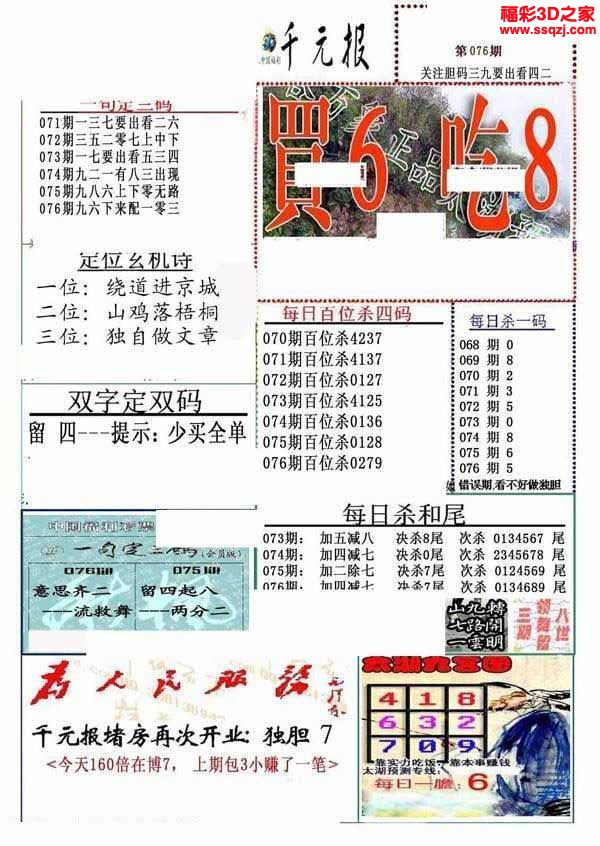 福彩3D之家
www.ssqzj.com
千元报
中国福彩
第076期
关注胆码三九要出看四二
一句定三码
071期一三七要出看二六
072期三五二零七上中下
073期一七要出看五三四
074期九二一有八三出现
075期九八六上下零无路
076期九六下来配一零三
買6 吃8
定位玄机诗
一位：绕道进京城
二位：山鸡落梧桐
三位：独自做文章
每日百位杀四码
070期百位杀4237
071期百位杀4137
072期百位杀0127
073期百位杀4125
074期百位杀0136
075期百位杀0128
076期百位杀0279
每日杀一码
068 期 0
069 期 8
070 期 2
071 期 3
072 期 5
073 期 0
074 期 8
075 期 6
076 期 5
错误期,看不好做独胆
双字定双码
留 四---提示：少买全单
每日杀和尾
073期： 加五减八 决杀8尾 次杀 0134567 尾
074期： 加四减七 决杀0尾 次杀 2345678 尾
075期： 加二除七 决杀7尾 次杀 0124569 尾
076期： 加四减七 决杀7尾 次杀 0134689 尾
中国福利彩票
一句定三码(会员版)
076期
意思齐二
---流救舞
075期
留四起八
---两分二
山九轉
七路開
一雲明
八世
领舞留
三期
为人民服务
千元报堵房再次开业：独胆 7
<今天160倍在博7， 上期包3小赚了一笔>
太湖九宫图
4 1 8
6 3 2
7 0 9
靠实力吃饭，靠本事赚钱
太湖预测专线：
每日一胆：6